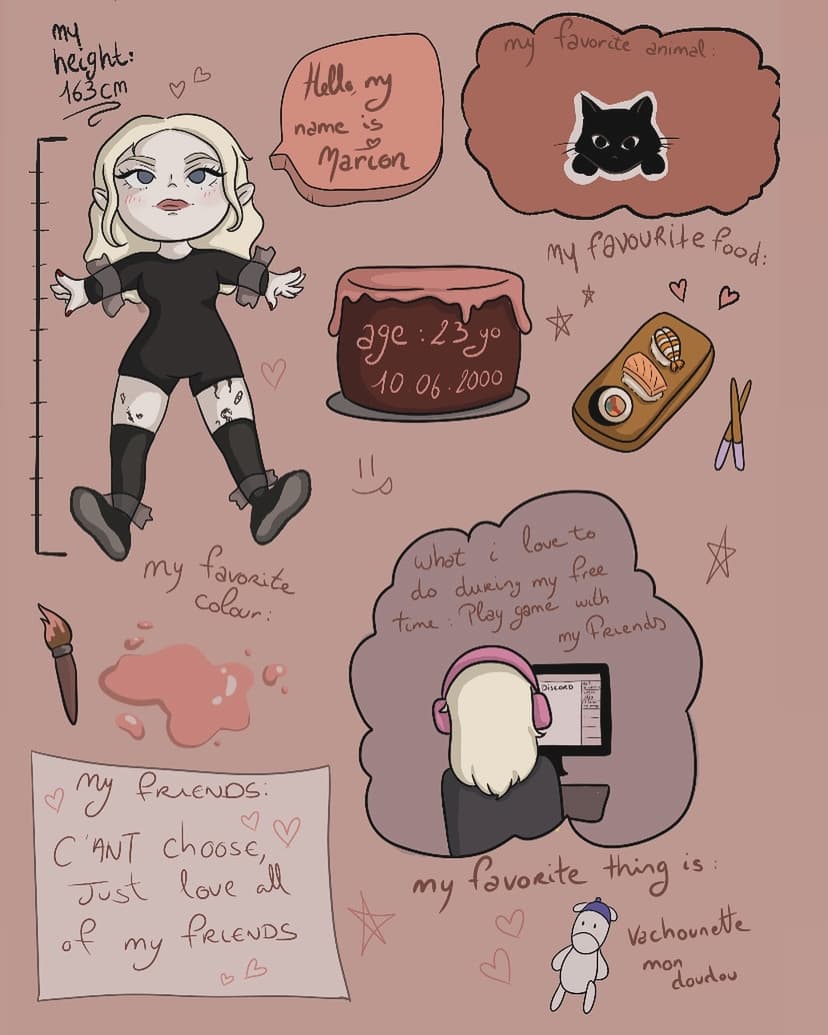 my
height:
163cm
Hello, my
name is
Marion
my favorite animal:
my favourite food:
age : 23 yo
10 06.2000
my favorite
colour:
what i love to
do during my free
time : Play game with
my friends
Discord
My FRIENDS:
C'ANT choose,
Just love all
of my FRIENDS
my favorite thing is :
Vachounette
mon
doudou